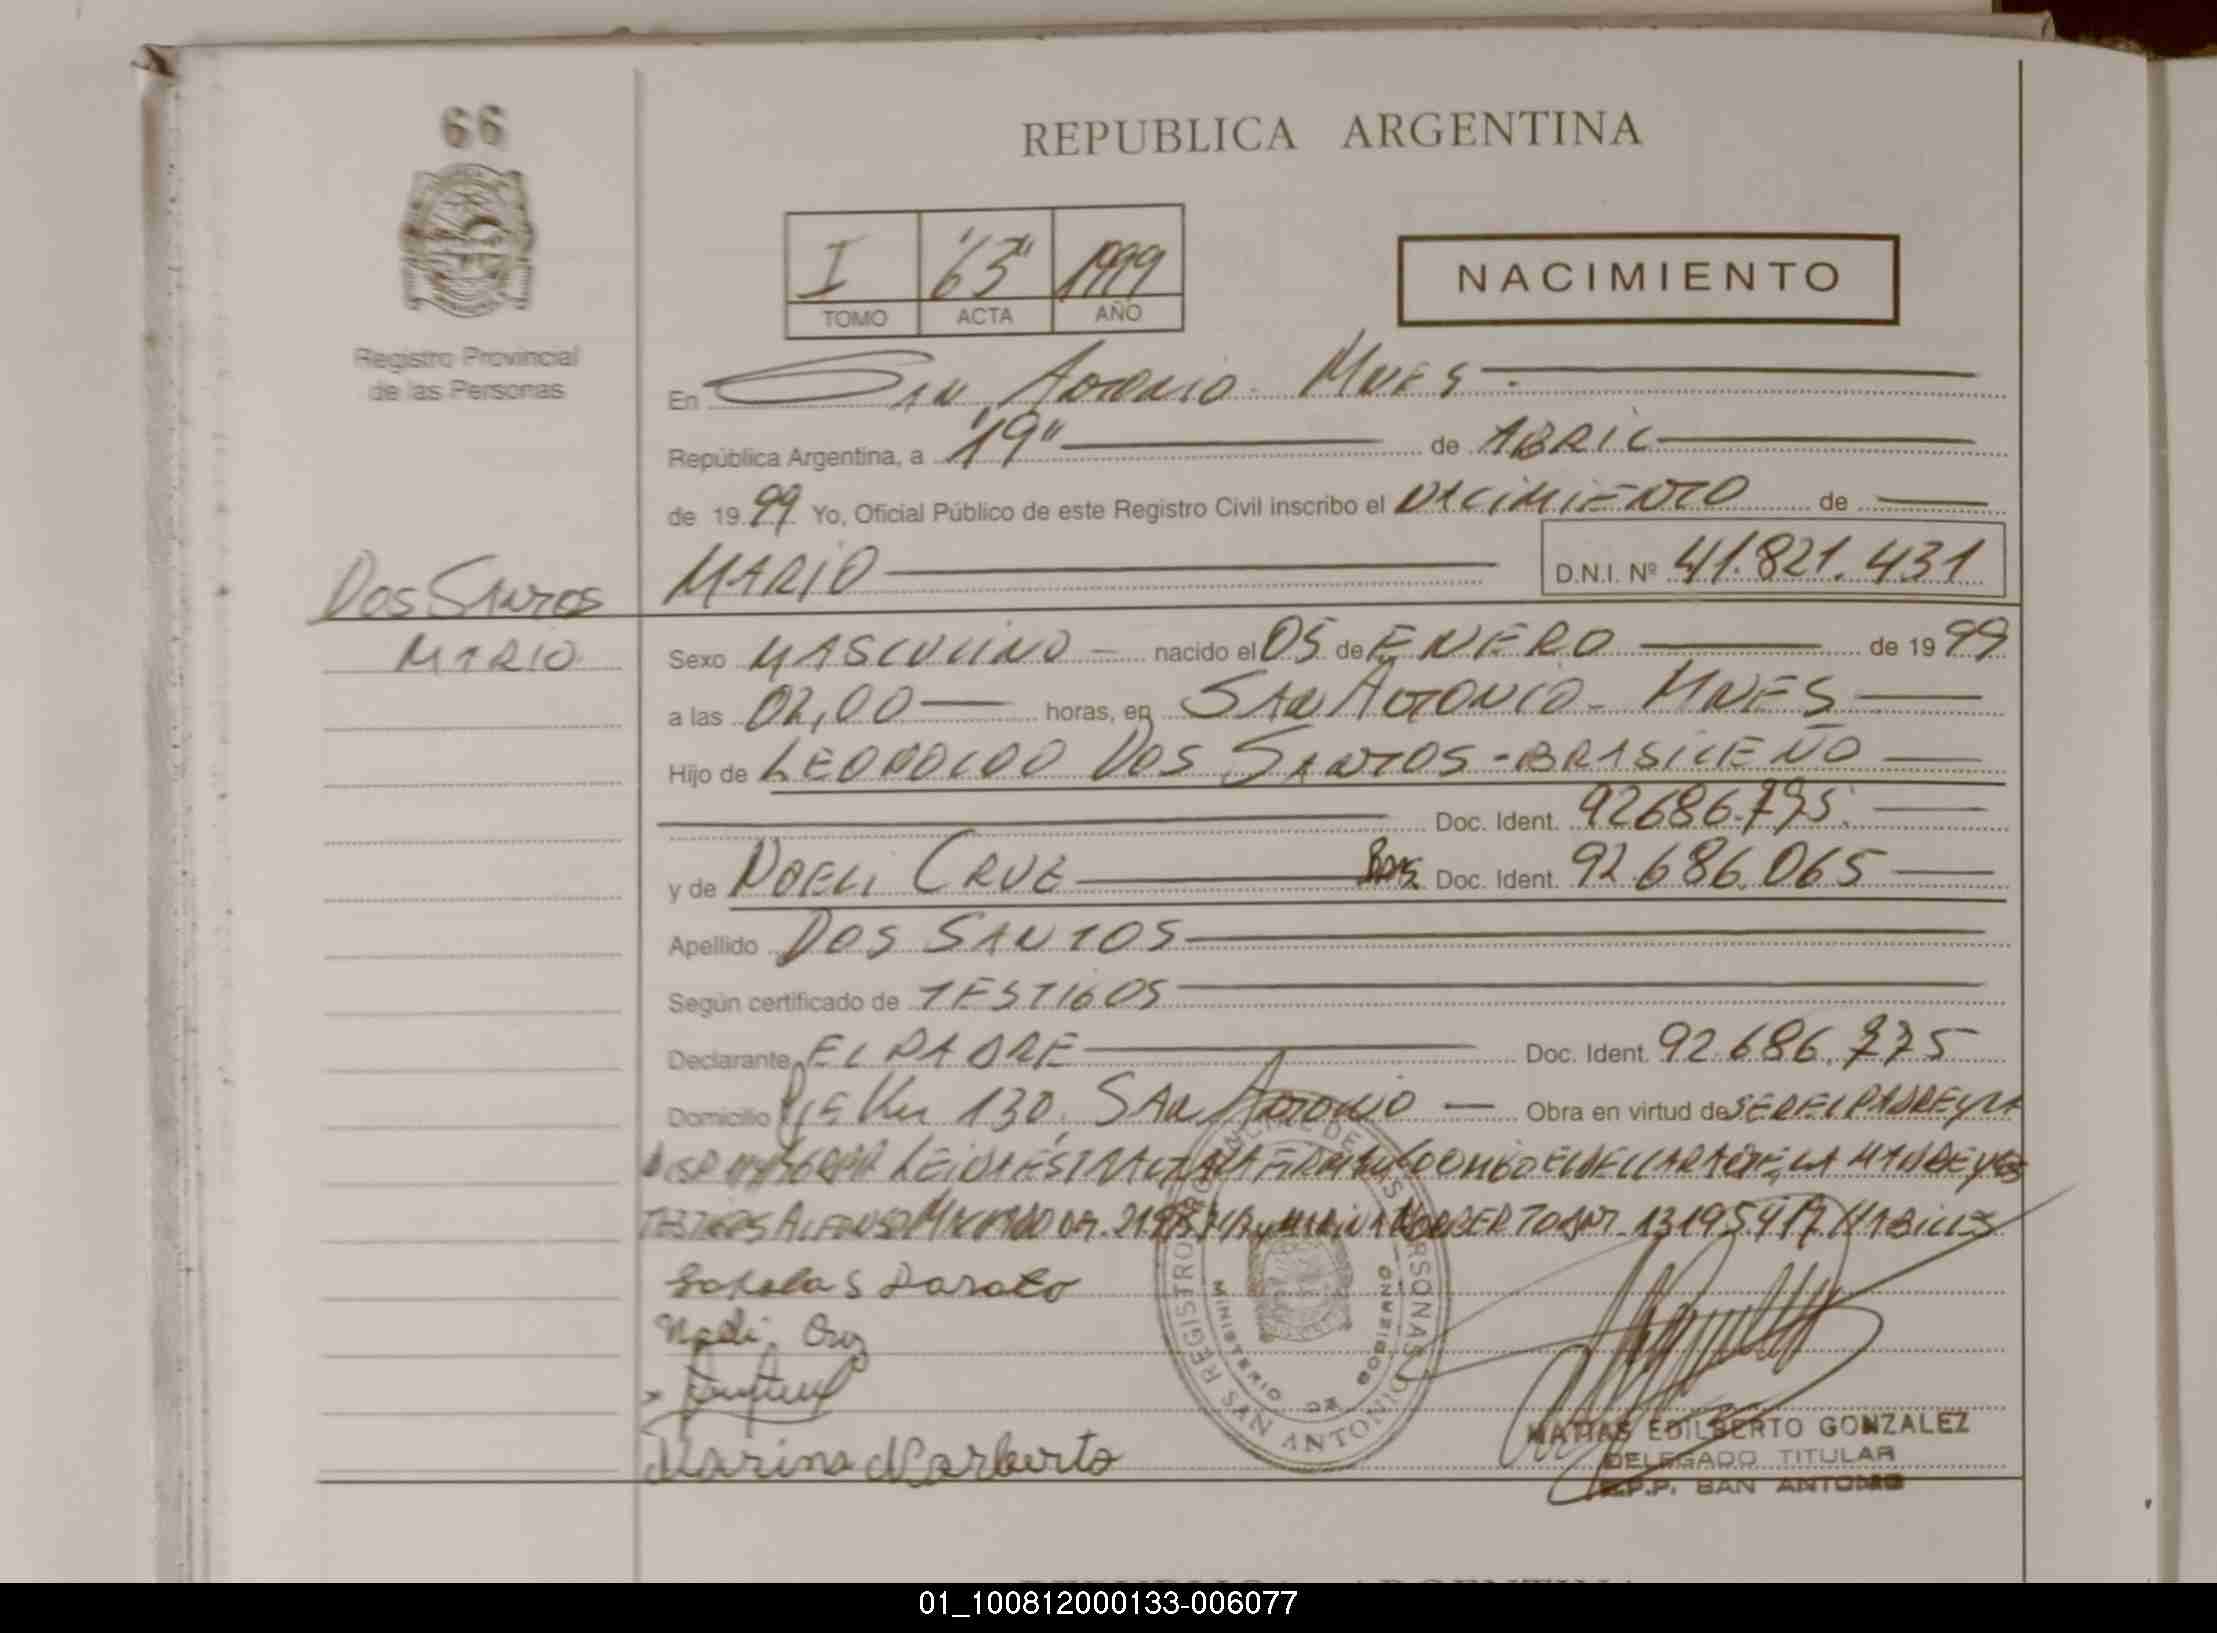 66
REPUBLICA ARGENTINA
I "63" 1999
TOMO ACTA AÑO
NACIMIENTO
Registro Provincial
de las Personas
En San Antonio - Mnes -
República Argentina, a "19" de ABRIL
de 1999 Yo, Oficial Público de este Registro Civil inscribo el NACIMIENTO de
MARIO D.N.I. Nº 41.821.431
Dos Santos
MARIO
Sexo MASCULINO nacido el 05 de ENERO de 1999
a las 02,00 horas, en SAN ANTONIO - MNES
Hijo de LEOPOLDO DOS SANTOS - BRASILEÑO
Doc. Ident. 92686.775.
y de NOELI CRUZ Bras. Doc. Ident. 92.686.065
Apellido DOS SANTOS
Según certificado de TESTIGOS
Declarante EL PADRE Doc. Ident. 92.686.775
Domicilio Pje Km 130, SAN ANTONIO Obra en virtud de SER EL PADRE Y LA
LEIDA ESTA ACTA LA FIRMAN CONMIGO EL DECLARANTE, LA MADRE Y LOS
TESTIGOS ALFONSO MACHADO Y MARINA NORBERTO 13195.417 HABILES
Noeli Cruz
Marina Norberto
REGISTRO PROVINCIAL DE LAS PERSONAS
MINISTERIO DE GOBIERNO
SAN ANTONIO
MATIAS EDILBERTO GONZALEZ
DELEGADO TITULAR
R.P.P. SAN ANTONIO
01_100812000133-006077